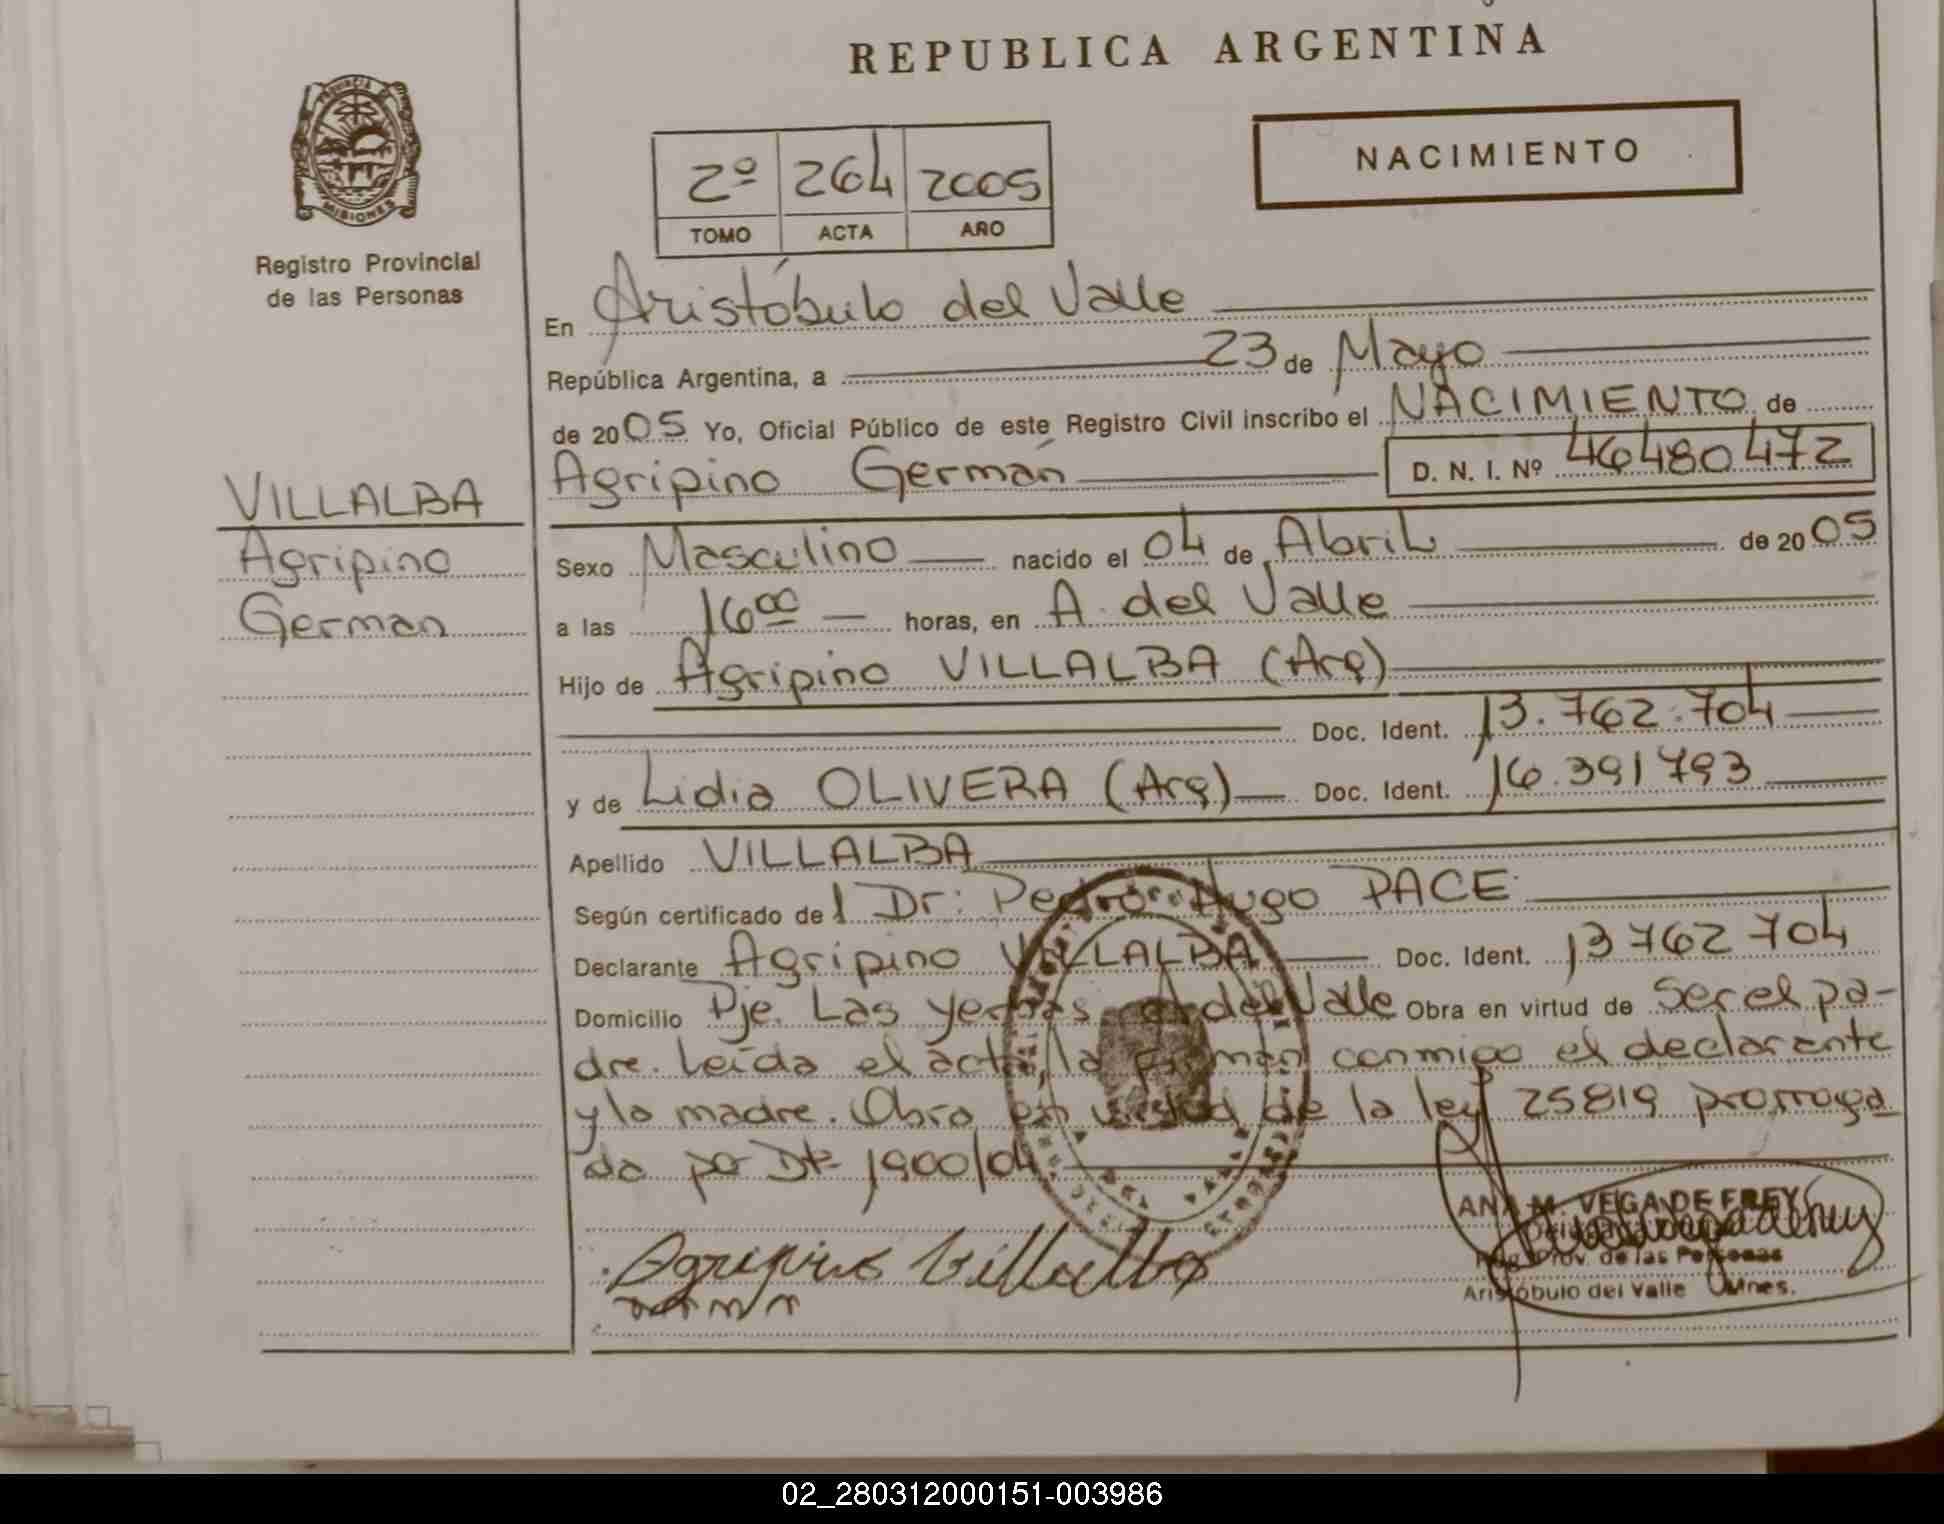 REPUBLICA ARGENTINA
PROVINCIA
MISIONES
Registro Provincial
de las Personas
2º 264 2005
TOMO ACTA AÑO
NACIMIENTO
En Aristóbulo del Valle
República Argentina, a 23 de Mayo
de 2005 Yo, Oficial Público de este Registro Civil inscribo el NACIMIENTO de
Agripino Germán D. N. I. Nº 46480472
VILLALBA
Agripino
German
Sexo Masculino nacido el 04 de Abril de 2005
a las 16 00 horas, en A. del Valle
Hijo de Agripino VILLALBA (Arg)
Doc. Ident. 13.762.704
y de Lidia OLIVERA (Arg) Doc. Ident. 16.391793
Apellido VILLALBA
Según certificado del Dr: Pedro Hugo PACE
Declarante Agripino VILLALBA Doc. Ident. 13762704
Domicilio Pje. Las Yerbas A del Valle Obra en virtud de Ser el pa-
dre. Leída el acta, la firman conmigo el declarante
y la madre. Obro en virtud de la ley 25819 prorroga
do por Dto 1900/04
Agripino Villalba
ANA M. VEGA DE FREY
Reg. Prov. de las Personas
Aristóbulo del Valle Mnes.
02_280312000151-003986